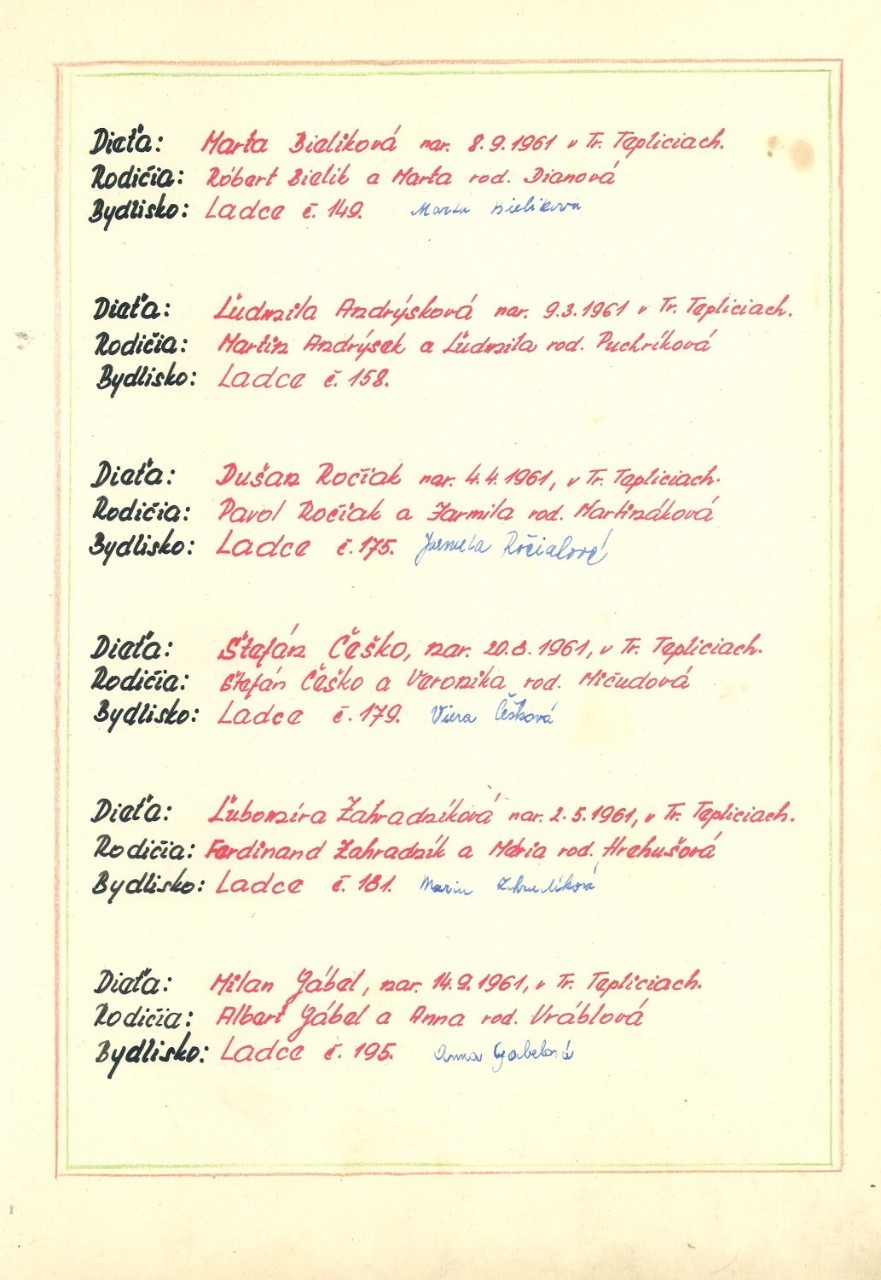 Dieťa: Marta Bieliková nar. 8.9.1961 v Tr. Tepliciach.
Rodičia: Róbert Bielik a Marta rod. Dianová
Bydlisko: Ladce č. 149. Marta Bieliková
Dieťa: Ľudmila Andrýsková nar. 9.3.1961 v Tr. Tepliciach.
Rodičia: Martin Andrýsek a Ľudmila rod. Puchríková
Bydlisko: Ladce č. 158.
Dieťa: Dušan Ročiak nar. 4.4.1961, v Tr. Tepliciach.
Rodičia: Pavol Ročiak a Jarmila rod. Martináková
Bydlisko: Ladce č. 175. Jarmila Ročiaková
Dieťa: Štefán Češko, nar. 20.8.1961, v Tr. Tepliciach.
Rodičia: Štefán Češko a Veronika rod. Mičudová
Bydlisko: Ladce č. 179. Viera Češková
Dieťa: Ľubomíra Zahradníková nar. 2.5.1961, v Tr. Tepliciach.
Rodičia: Ferdinand Zahradník a Mária rod. Hrehušová
Bydlisko: Ladce č. 181. Mária Zahradníková
Dieťa: Milan Gábel, nar. 14.9.1961, v Tr. Tepliciach.
Rodičia: Albert Gábel a Anna rod. Vráblová
Bydlisko: Ladce č. 195. Anna Gabelová